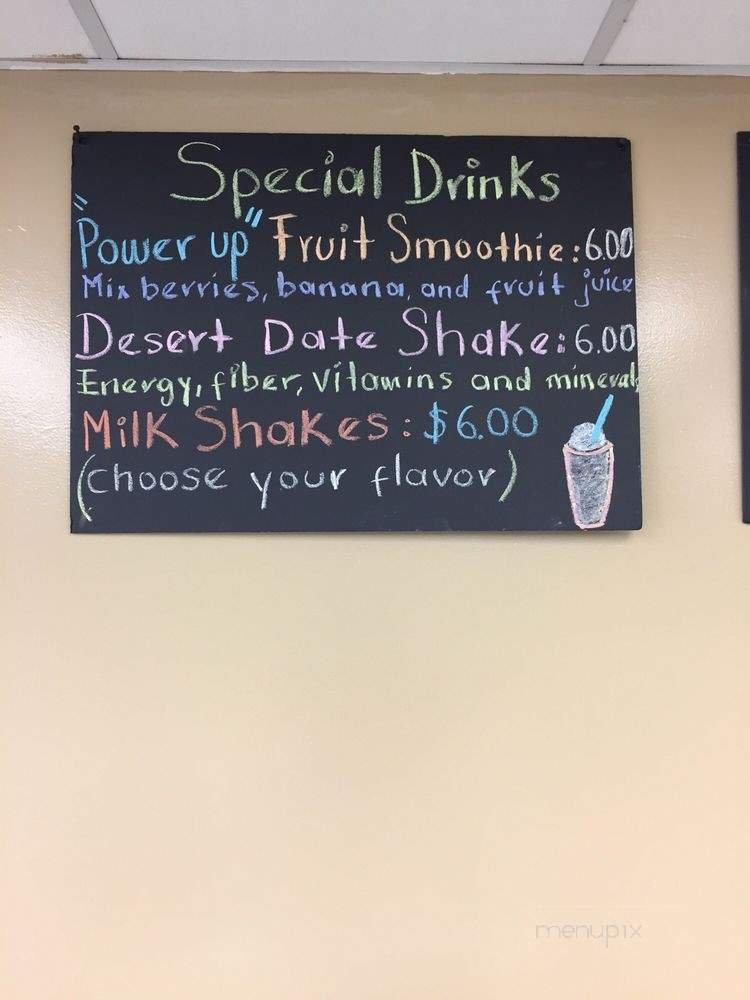 Special Drinks
"Power up" Fruit Smoothie: 6.00
Mix berries, banana, and fruit juice
Desert Date Shake: 6.00
Energy, fiber, vitamins and minerals
Milk Shakes: $6.00
(choose your flavor)
menupix